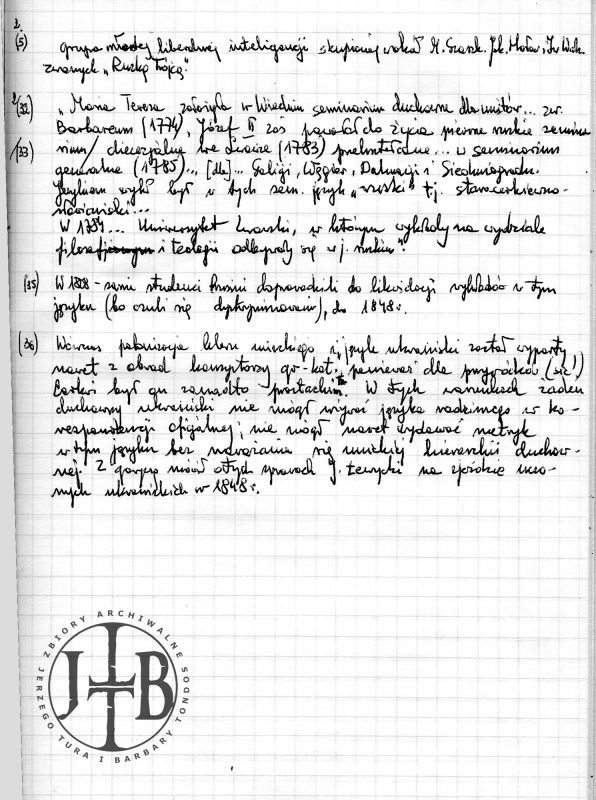 2.
(5) grupa młodej liberalnej inteligencji skupionej wokół M. Szaszk. Jak. Hołow. i Iw. Wah.
zwanych „Ruską Trójcą".
(32) „Maria Teresa założyła w Wiedniu seminarium duchowne dla unitów... zw.
Barbareum [1774], Józef II zaś powołał do życia pierwsze ruskie semina
(33) rium/ diecezjalne we Lwowie (1783) przekształcone... w seminarium
generalne (1785)... [dla]... Galicji, Węgier, Dalmacji i Siedmiogrodu.
Językiem wykł. był w tych sem. język „ruski" tj. starocerkiewno-
słowiański...
W 1784... Uniwersytet Lwowski, w którym wykłady na wydziale
filozof i teologii odbywały się w j. ruskim".
(35) W 1808 - sami studenci Rusini doprowadzili do likwidacji wykładów w tym
języku (bo czuli się dyskryminowani), do 1848 r.
(36) Wówczas polonizacja kleru unickiego i język ukraiński został wyparty
nawet z obrad konsystorzy gr-kat, ponieważ dla prawników (sic!)
Cerkwi był on zanadto prostackim. W tych warunkach żaden
duchowny ukraiński nie mógł używać języka rodzinnego w ko-
respondencji oficjalnej; nie mógł nawet wydawać metryk
w tym języku bez narażania się unickiej hierarchii duchow-
nej. Z goryczą mówił o tych sprawach J. Łewycki na zjeździe uczo-
nych ukraińskich w 1848 r.
ZBIORY ARCHIWALNE
JERZEGO TURA I BARBARY TONDOS
JTB